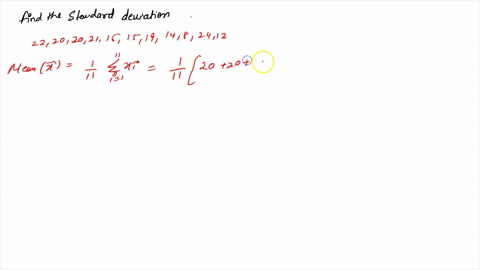 find the Standard deviation .
22, 20, 20, 21, 15, 15, 19, 14, 8, 24, 12
Mean (x̄) = 1/11 11∑i=1 xi = 1/11 [ 20 + 20 +